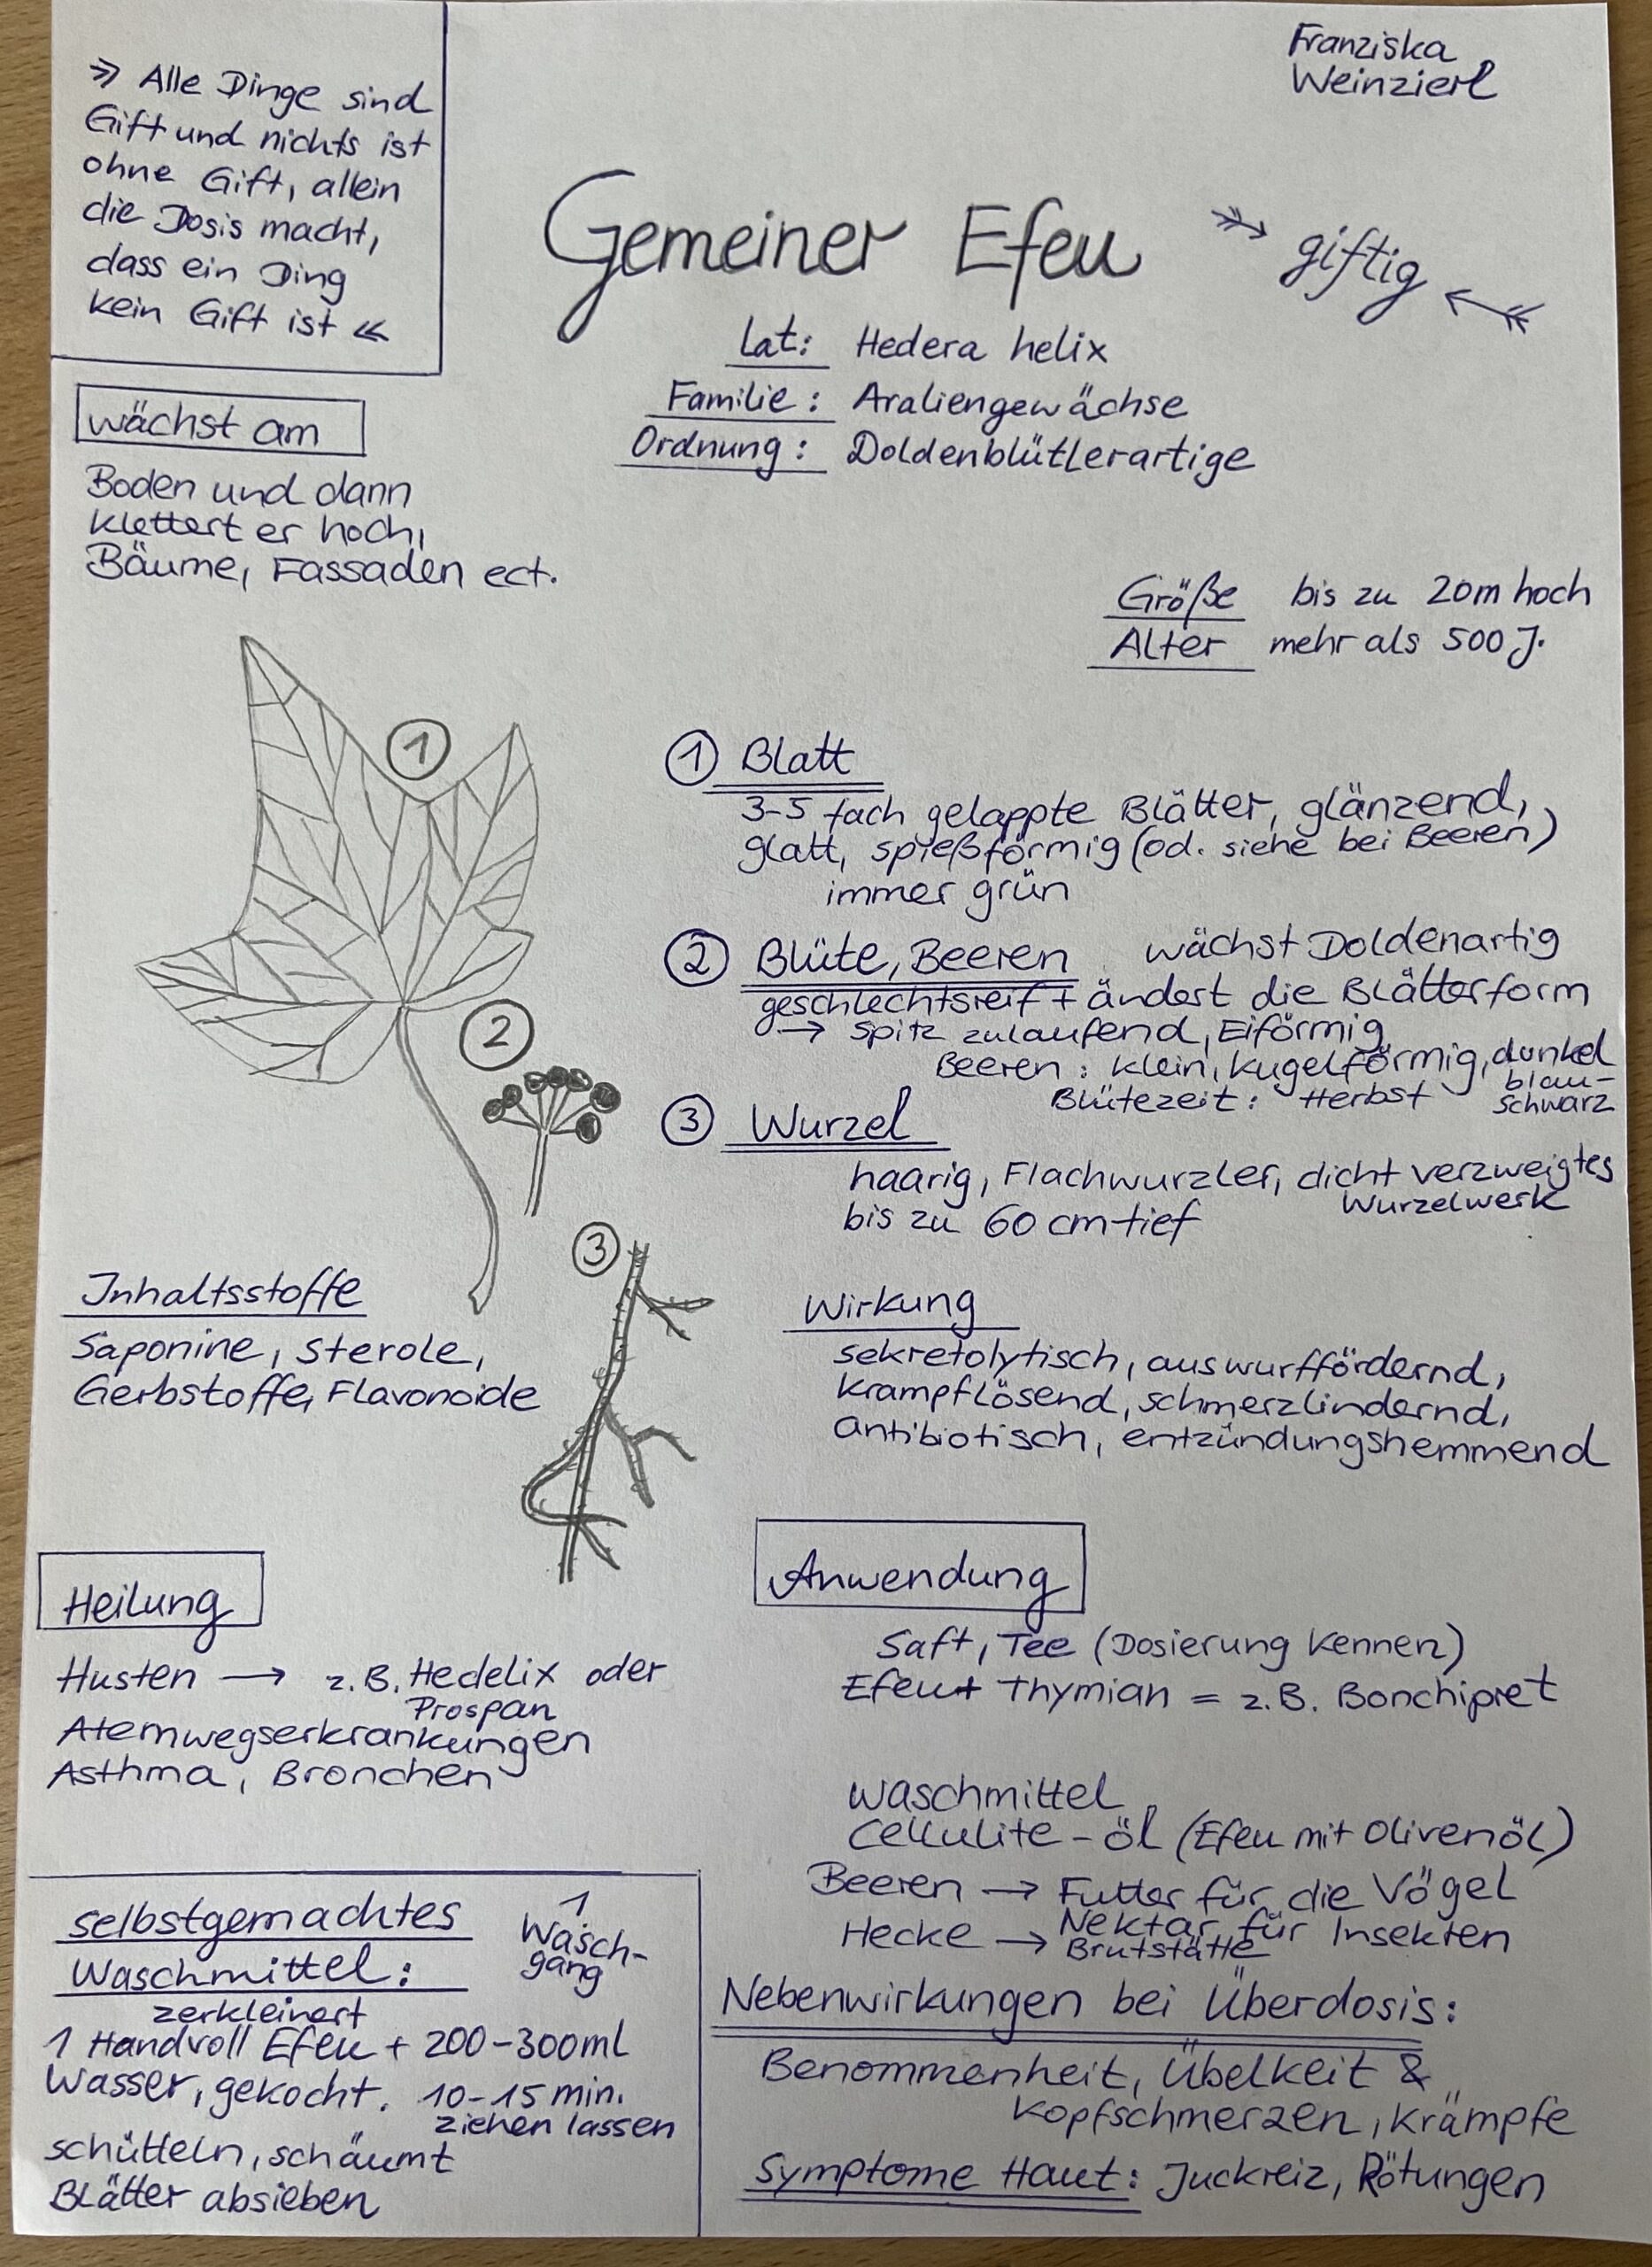 Franziska
Weinzierl
» Alle Dinge sind
Gift und nichts ist
ohne Gift, allein
die Dosis macht,
dass ein Ding
kein Gift ist «
Gemeiner Efeu
giftig
Lat: Hedera helix
Familie: Araliengewächse
Ordnung: Doldenblütlerartige
wächst am
Boden und dann
klettert er hoch,
Bäume, Fassaden ect.
Größe bis zu 20m hoch
Alter mehr als 500 J.
1
2
3
① Blatt
3-5 fach gelappte Blätter, glänzend,
glatt, spießförmig (od. siehe bei Beeren)
immer grün
② Blüte, Beeren wächst Doldenartig
geschlechtsreif + ändert die Blätterform
→ spitz zulaufend, Eiförmig
Beeren: klein, kugelförmig, dunkel
blau-
schwarz
Blütezeit: Herbst
③ Wurzel
haarig, Flachwurzler, dicht verzweigtes
Wurzelwerk
bis zu 60 cm tief
Inhaltsstoffe
Saponine, Sterole,
Gerbstoffe, Flavonoide
Wirkung
sekretolytisch, auswurffördernd,
krampflösend, schmerzlindernd,
antibiotisch, entzündungshemmend
Heilung
Husten → z.B. Hedelix oder
Prospan
Atemwegserkrankungen
Asthma, Bronchen
Anwendung
Saft, Tee (Dosierung kennen)
Efeu + Thymian = z.B. Bonchipret
Waschmittel
Cellulite-öl (Efeu mit Olivenöl)
Beeren → Futter für die Vögel
Hecke → Nektar für Insekten
Brutstätte
selbstgemachtes
Waschmittel:
1
Wasch-
gang
zerkleinert
1 Handvoll Efeu + 200-300ml
Wasser, gekocht. 10-15 min.
ziehen lassen
schütteln, schäumt
Blätter absieben
Nebenwirkungen bei Überdosis:
Benommenheit, Übelkeit &
Kopfschmerzen, Krämpfe
Symptome Haut: Juckreiz, Rötungen